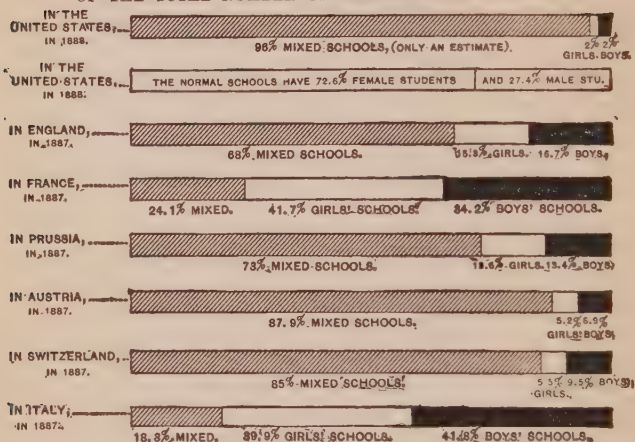 IN THE
UNITED STATES,
IN 1888.
96% MIXED SCHOOLS, (ONLY AN ESTIMATE).
2% 2%
GIRLS. BOYS.
IN THE
UNITED STATES,
IN 1888.
THE NORMAL SCHOOLS HAVE 72.6% FEMALE STUDENTS AND 27.4% MALE STU.
IN ENGLAND,
IN 1887.
68% MIXED SCHOOLS. GIRLS. 16.7% BOYS.
IN FRANCE,
IN 1887.
24.1% MIXED. 41.7% GIRLS' SCHOOLS. 34.2% BOYS' SCHOOLS.
IN PRUSSIA,
IN 1887.
73% MIXED SCHOOLS. 13.6% GIRLS. 13.4% BOYS.
IN AUSTRIA,
IN 1887.
87.9% MIXED SCHOOLS. 5.2% 6.9%
GIRLS. BOYS.
IN SWITZERLAND,
IN 1887.
85% MIXED SCHOOLS. 5.5% 9.5% BOYS.
GIRLS.
IN ITALY,
IN 1887.
18.3% MIXED. 39.9% GIRLS' SCHOOLS. 41.8% BOYS' SCHOOLS.